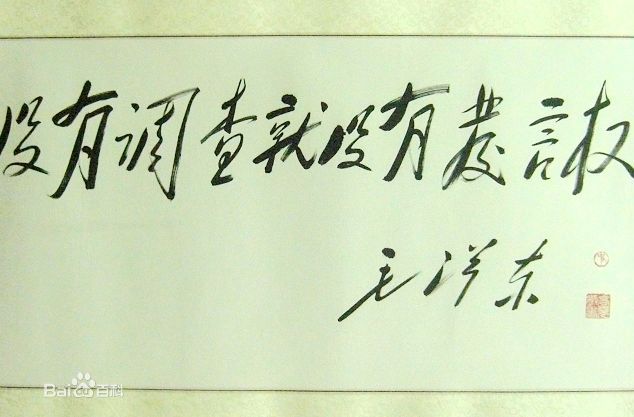 没有调查就没有發言权
毛泽东
Bai百科